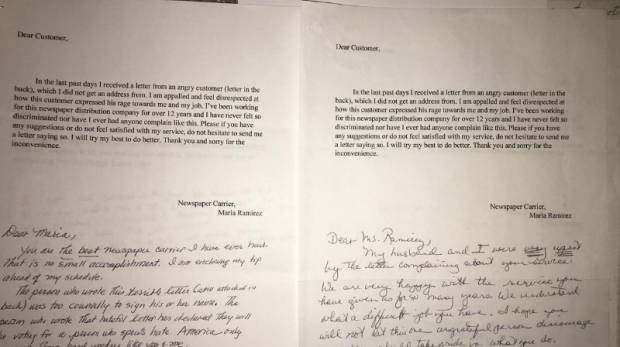 Dear Customer,
In the last past days I received a letter from an angry customer (letter in the
back), which I did not get an address from. I am appalled and feel disrespected at
how this customer expressed his rage towards me and my job. I've been working
for this newspaper distribution company for over 12 years and I have never felt so
discriminated nor have I ever had anyone complain like this. Please if you have
any suggestions or do not feel satisfied with my service, do not hesitate to send me
a letter saying so. I will try my best to do better. Thank you and sorry for the
inconvenience.
Newspaper Carrier,
Maria Ramirez
Dear Maria,
You are the best newspaper carrier I have ever had.
That is no small accomplishment. I am enclosing my tip
ahead of my schedule.
The person who wrote this horrible letter (one attached in
back) was too cowardly to sign his or her name. The
person who wrote that hateful letter has declared they will
be voting for a person who spouts hate. America only
hard workers like you & me.
Dear Customer,
In the last past days I received a letter from an angry customer (letter in the
back), which I did not get an address from. I am appalled and feel disrespected at
how this customer expressed his rage towards me and my job. I've been working
for this newspaper distribution company for over 12 years and I have never felt so
discriminated nor have I ever had anyone complain like this. Please if you have
any suggestions or do not feel satisfied with my service, do not hesitate to send me
a letter saying so. I will try my best to do better. Thank you and sorry for the
inconvenience.
Newspaper Carrier,
Maria Ramirez
Dear Ms. Ramirez,
My husband and I were very
by the letter complaining about your service.
We are very happy with the service you
have given us for so many years. We understand
what a difficult job you have. I hope you
will not let this one ungrateful person discourage
take pride in what you do.